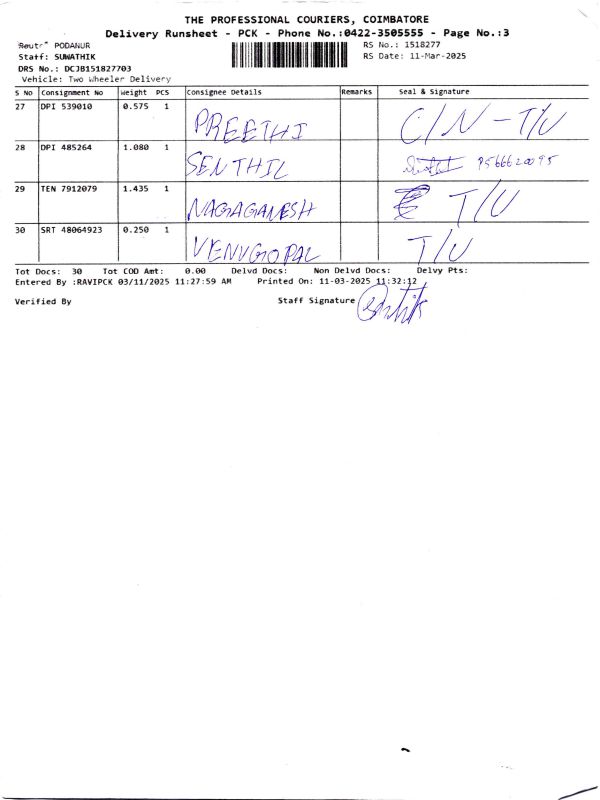 THE PROFESSIONAL COURIERS, COIMBATORE
Delivery Runsheet - PCK - Phone No.:0422-3505555 - Page No.:3
PODANUR RS No.: 1518277
Staff: SUWATHIK RS Date: 11-Mar-2025
DRS No.: DCJB151827703
Vehicle: Two Wheeler Delivery
S No Consignment No Weight PCS Consignee Details Remarks Seal & Signature
27 DPI 539010 0.575 1 PREETHI C/N - T/U
28 DPI 485264 1.080 1 SENTHIL 9566620095
29 TEN 7912079 1.435 1 NAGAGANESH T/U
30 SRT 48064923 0.250 1 VENUGOPAL T/U
Tot Docs: 30 Tot COD Amt: 0.00 Delvd Docs: Non Delvd Docs: Delvy Pts:
Entered By :RAVIPCK 03/11/2025 11:27:59 AM Printed On: 11-03-2025 11:32:12
Verified By Staff Signature